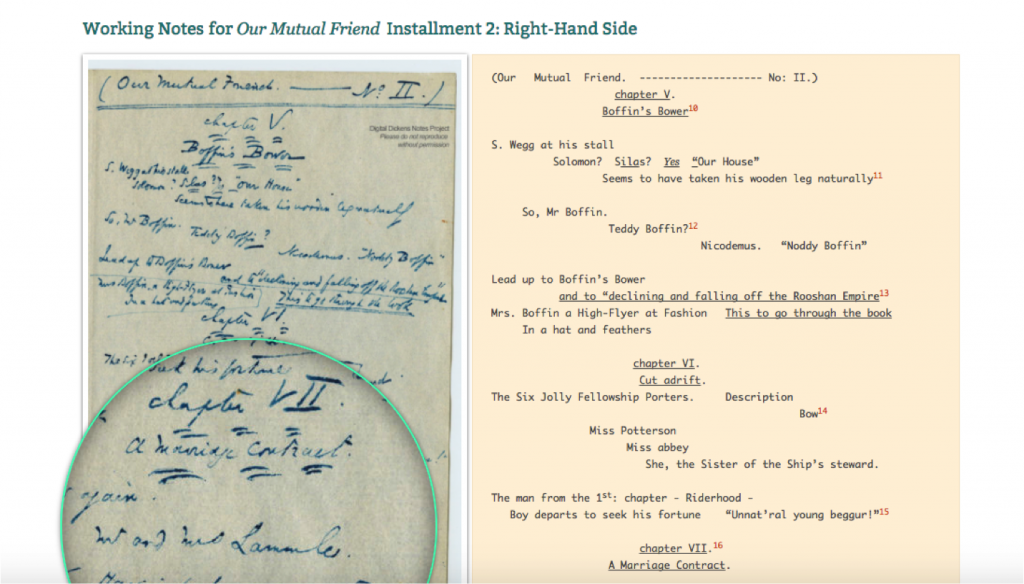 Working Notes for Our Mutual Friend Installment 2: Right-Hand Side
(Our Mutual Friend. — No. II.)
chapter V.
Boffin's Bower
Digital Dickens Notes Project
Please do not reproduce
without permission
S. Wegg at his stall
Solomon? Silas? "Our House"
Seems to have taken his wooden leg naturally
So, Mr Boffin.
Teddy Boffin?
Nicodemus. "Noddy Boffin"
Lead up to Boffin's Bower
and to "declining and falling off the Rooshan Empire"
Mrs Boffin a High-Flyer at Fashion
This to go through the book
In a hat and feathers
chapter VI.
The Six
seek his fortune
chapter VII.
A Marriage Contract.
again.
Mr and Mrs Lammle.
(Our Mutual Friend. -------------------- No: II.)
chapter V.
Boffin's Bower10
S. Wegg at his stall
Solomon? Silas? Yes "Our House"
Seems to have taken his wooden leg naturally11
So, Mr Boffin.
Teddy Boffin?12
Nicodemus. "Noddy Boffin"
Lead up to Boffin's Bower
and to "declining and falling off the Rooshan Empire13
Mrs. Boffin a High-Flyer at Fashion This to go through the book
In a hat and feathers
chapter VI.
Cut adrift.
The Six Jolly Fellowship Porters. Description
Bow14
Miss Potterson
Miss abbey
She, the Sister of the Ship's steward.
The man from the 1st: chapter - Riderhood -
Boy departs to seek his fortune "Unnat'ral young beggur!"15
chapter VII.16
A Marriage Contract.